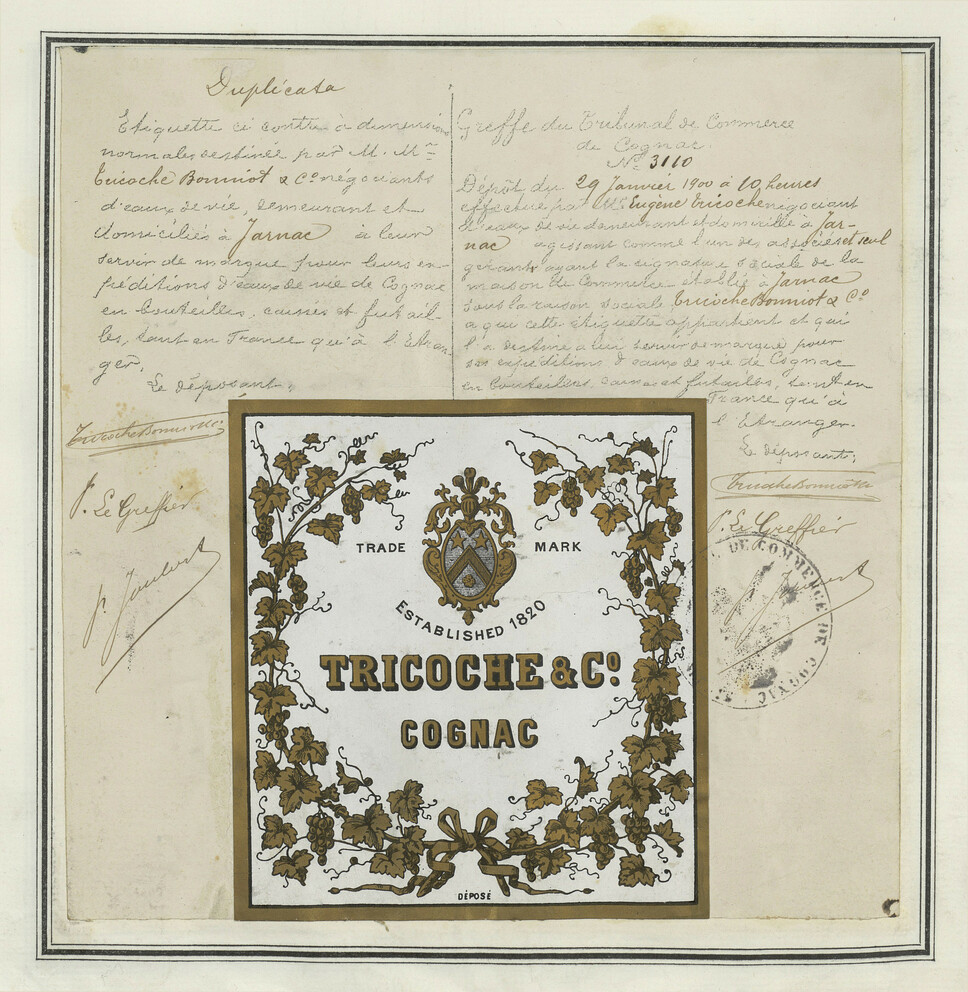 Duplicata
Etiquette ci contre à dimensions
normales destinée par M. Mrs
Tricoche Bonniot & Co négociants
d'eaux de vie, demeurant et
domiciliés à Jarnac à leur
servir de marque pour leurs ex-
péditions d'eaux de vie de Cognac
en bouteilles, caisses et futail-
les, tant en France qu'à l'Etran-
ger,
Le déposant,
Tricoche Bonniot & Co
P. Le Greffier
Greffe du Tribunal de Commerce
de Cognac.
No 3110
Dépôt du 29 Janvier 1900 à 10 heures
effectué par Mr Eugène Tricoche négociant
d'eaux de vie demeurant et domicilié à Jar-
nac agissant comme l'un des associés et seul
gérant ayant la signature sociale de la
maison de Commerce établie à Jarnac
sous la raison sociale Tricoche Bonniot & Co
a qui cette étiquette appartient et qui
l'a destine a lui servir de marque pour
ses expéditions d'eaux de vie de Cognac
en bouteilles, caisses et futailles, tant en
France qu'à
l'Etranger.
Le déposant,
Tricoche Bonniot & Co
P. Le Greffier
DE COMMERCE DE COGNAC
TRADE MARK
ESTABLISHED 1820
TRICOCHE & Co
COGNAC
DÉPOSÉ